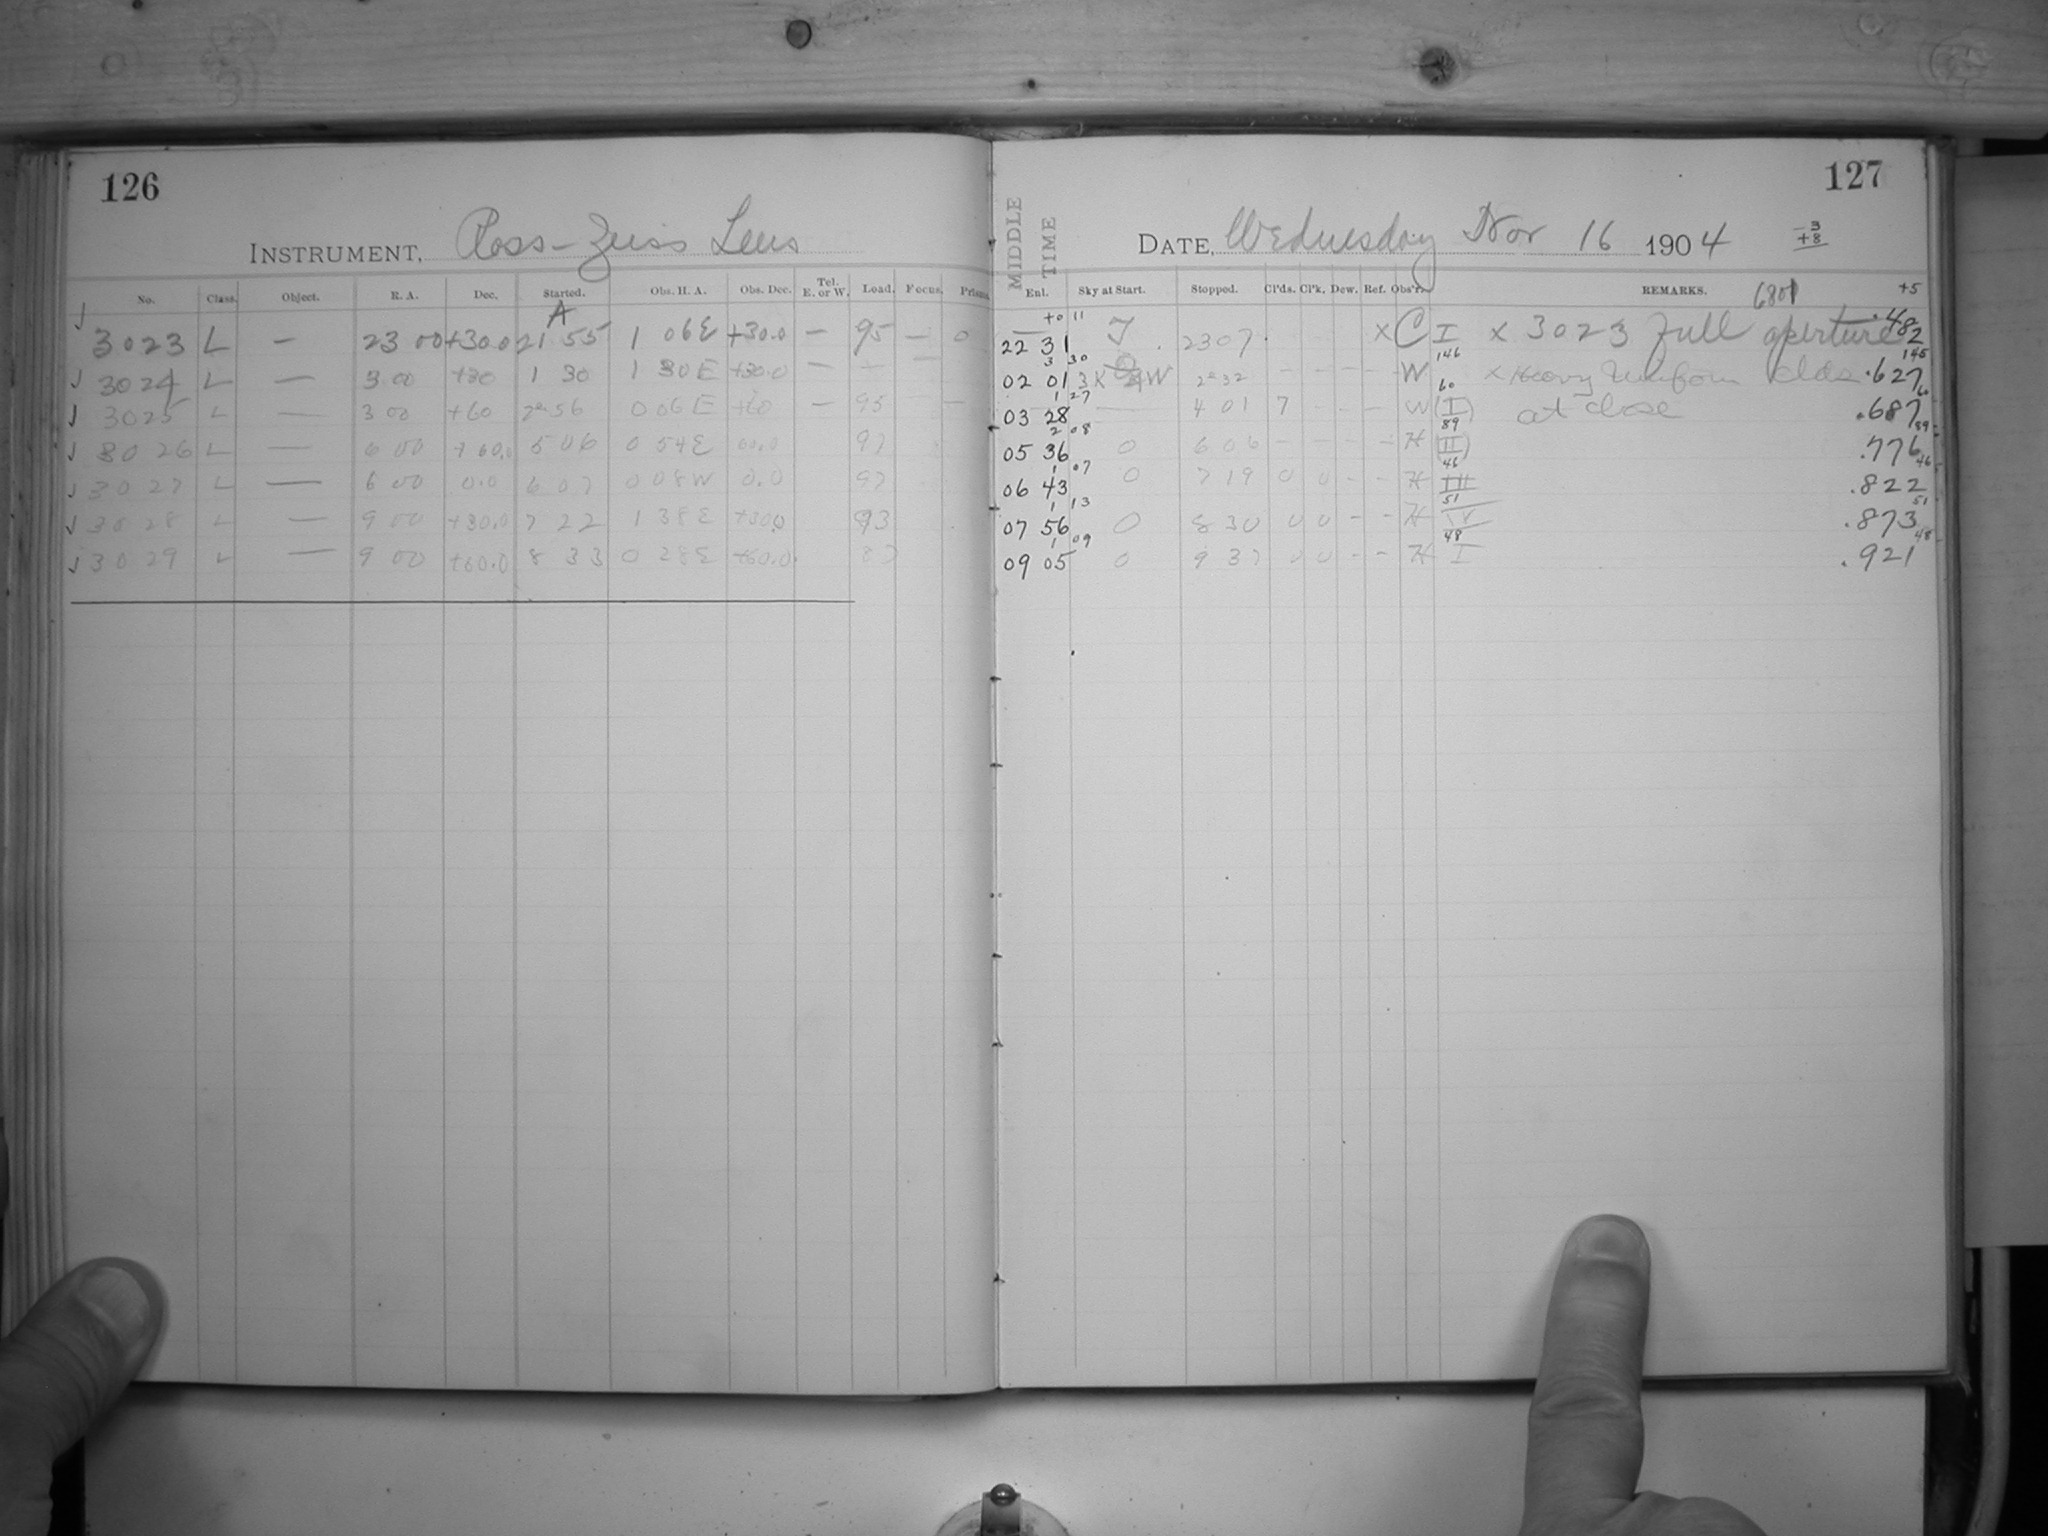 126
INSTRUMENT, Ross-Zeiss Lens
No. Class. Object. R. A. Dec. Started. Obs. H. A. Obs. Dec. Tel. E. or W. Load. Focus. Prism.
A
3023 L — 23 00 +30.0 21 55 1 06E +30.0 — 95 — 0
3024 L — 3 00 +30 1 30 1 30E +30.0 — —
3025 L — 3 00 +60 2 56 0 06E +60 — 95 —
3026 L — 6 00 +60.0 5 06 0 54E 60.0 97
3027 L — 6 00 0.0 6 07 0 08W 0.0 97
3028 L — 9 00 +30.0 7 22 1 38E +30.0 93
3029 L — 9 00 +60.0 8 33 0 28E +60.0 87
127
MIDDLE TIME
DATE, Wednesday Nov 16 1904
-3
+8
Enl. Sky at Start. Stopped. Cl'ds. Cl'k. Dew. Ref. Obs'r. REMARKS. 6801 +5
+0 11
22 31 2307 x C I x 3023 full aperture .482
3 30 146 145
02 01 3K W 2 32 - - - - W x Heavy uniform clds .627
1 27 60 60
03 28 — 4 01 7 - - - W (I) at close .687
2 08 89 89
05 36 0 6 06 - - - - H (II) .776
1 07 46 46
06 43 0 7 19 0 0 - - H III .822
1 13 51 51
07 56 0 8 30 0 0 - - H IV .873
1 09 48 48
09 05 0 9 37 0 0 - - H I .921